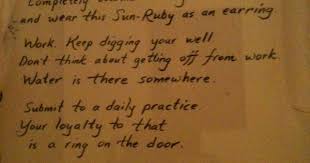 Completely
and wear this Sun-Ruby as an earring.
Work. Keep digging your well.
Don't think about getting off from work.
Water is there somewhere.
Submit to a daily practice.
Your loyalty to that
is a ring on the door.